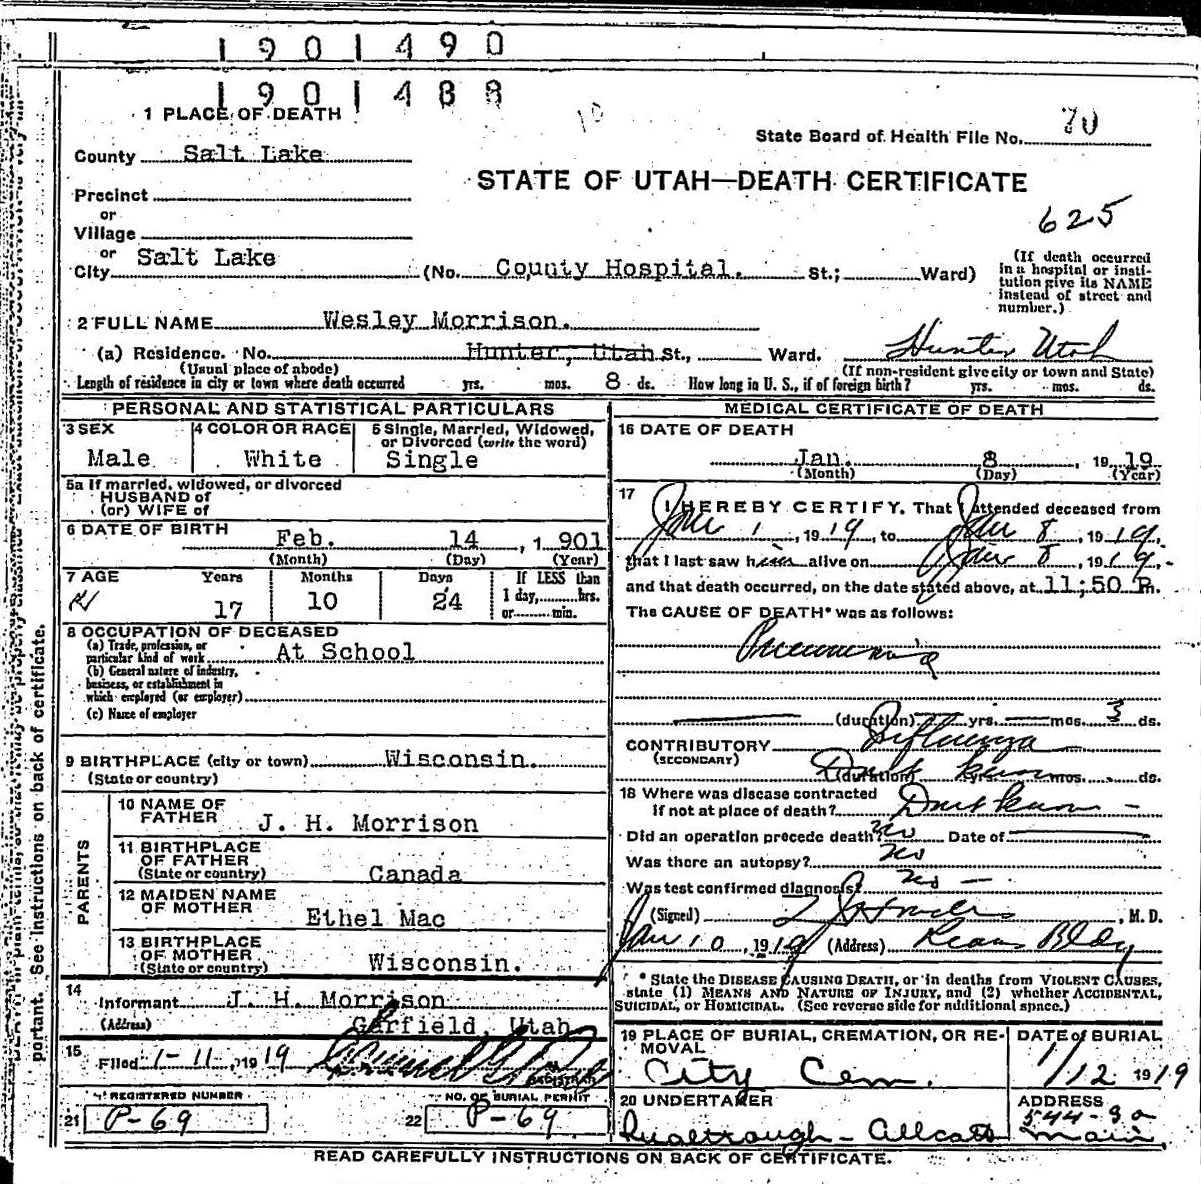 1901490
1901488
1 PLACE OF DEATH
State Board of Health File No. 70
County Salt Lake
STATE OF UTAH—DEATH CERTIFICATE
Precinct
or
Village
625
or
City Salt Lake (No. County Hospital. St.; Ward)
(If death occurred in a hospital or insti-
tution give its NAME
instead of street and
number.)
2 FULL NAME Wesley Morrison.
(a) Residence. No. Hunter, Utah St., Ward. Hunter Utah
(Usual place of abode) (If non-resident give city or town and State)
Length of residence in city or town where death occurred yrs. mos. 8 ds. How long in U. S., if of foreign birth? yrs. mos. ds.
PERSONAL AND STATISTICAL PARTICULARS
3 SEX
Male
4 COLOR OR RACE
White
5 Single, Married, Widowed,
or Divorced (write the word)
Single
5a If married, widowed, or divorced
HUSBAND of
(or) WIFE of
6 DATE OF BIRTH Feb. 14, 1901
(Month) (Day) (Year)
7 AGE Years Months Days If LESS than
17 10 24 1 day, hrs.
or min.
8 OCCUPATION OF DECEASED
(a) Trade, profession, or
particular kind of work At School
(b) General nature of industry,
business, or establishment in
which employed (or employer)
(c) Name of employer
9 BIRTHPLACE (city or town) Wisconsin.
(State or country)
PARENTS
10 NAME OF
FATHER J. H. Morrison
11 BIRTHPLACE
OF FATHER
(State or country) Canada
12 MAIDEN NAME
OF MOTHER Ethel Mac
13 BIRTHPLACE
OF MOTHER
(State or country) Wisconsin.
14
Informant J. H. Morrison
(Address) Garfield, Utah
15
Filed 1-11, 1919
REGISTRAR
REGISTERED NUMBER
21 P-69
NO. OF BURIAL PERMIT
22 P-69
MEDICAL CERTIFICATE OF DEATH
16 DATE OF DEATH
Jan. 8, 1919
(Month) (Day) (Year)
17 I HEREBY CERTIFY, That I attended deceased from
Jan 1, 1919, to Jan 8, 1919.
that I last saw him alive on Jan 8, 1919.
and that death occurred, on the date stated above, at 11;50 P.m.
The CAUSE OF DEATH* was as follows:
Pneumonia
(duration) yrs. mos. 3 ds.
CONTRIBUTORY Influenza
(SECONDARY)
(duration) Don't know yrs. mos. ds.
18 Where was disease contracted
if not at place of death? Don't know
Did an operation precede death? no Date of
Was there an autopsy? no
Was test confirmed diagnosis? no
(Signed) , M. D.
Jan 10, 1919 (Address) Kearns Bldg
* State the DISEASE CAUSING DEATH, or in deaths from VIOLENT CAUSES,
state (1) MEANS AND NATURE OF INJURY, and (2) whether ACCIDENTAL,
SUICIDAL, or HOMICIDAL. (See reverse side for additional space.)
19 PLACE OF BURIAL, CREMATION, OR RE-
MOVAL
City Cem.
DATE of BURIAL
1/12 1919
20 UNDERTAKER
ADDRESS
544-So
Main
READ CAREFULLY INSTRUCTIONS ON BACK OF CERTIFICATE.
portant. See instructions on back of certificate.